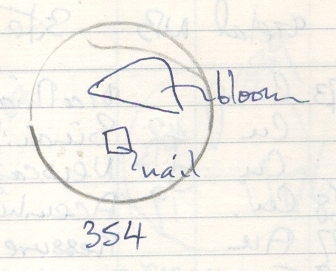 bloom
nail
354